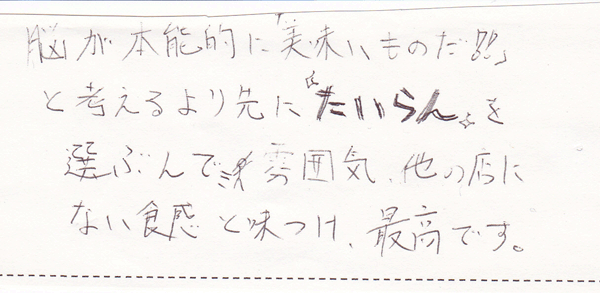 脳が本能的に「美味いものだ!!」
と考えるより先に『たいらん』を
選ぶんです 雰囲気、他の店に
ない食感と味つけ、最高です。